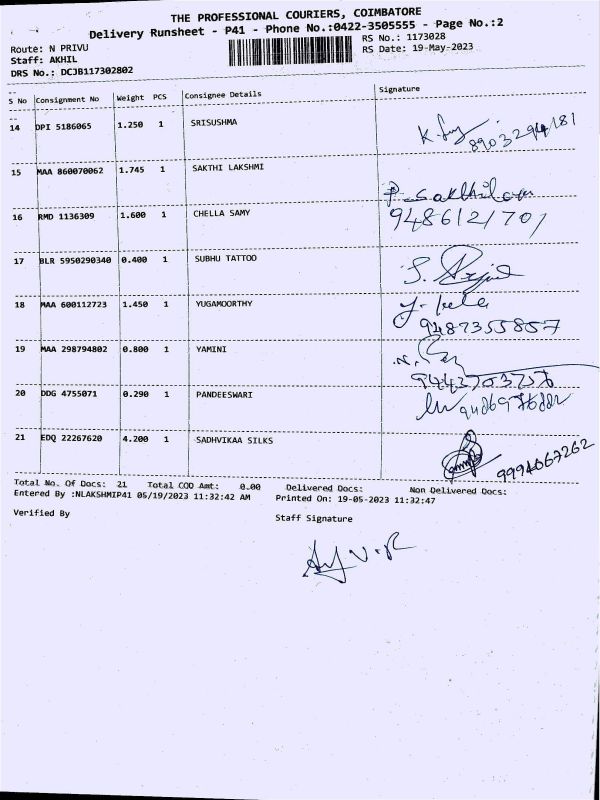 THE PROFESSIONAL COURIERS, COIMBATORE
Delivery Runsheet - P41 - Phone No.:0422-3505555 - Page No.:2
Route: N PRIVU
RS No.: 1173028
Staff: AKHIL
RS Date: 19-May-2023
DRS No.: DCJB117302802
S No Consignment No Weight PCS Consignee Details Signature
14 DPI 5186065 1.250 1 SRISUSHMA
8903294181
15 MAA 860070062 1.745 1 SAKTHI LAKSHMI
P. Sakthi
16 RMD 1136309 1.600 1 CHELLA SAMY
9486121701
17 BLR 5950290340 0.400 1 SUBHU TATTOO
18 MAA 600112723 1.450 1 YUGAMOORTHY
9487355857
19 MAA 298794802 0.800 1 YAMINI
20 DDG 4755071 0.290 1 PANDEESWARI
21 EDQ 22267620 4.200 1 SADHVIKAA SILKS
9994067262
Total No. Of Docs: 21 Total COD Amt: 0.00 Delivered Docs: Non Delivered Docs:
Entered By :NLAKSHMIP41 05/19/2023 11:32:42 AM Printed On: 19-05-2023 11:32:47
Verified By
Staff Signature